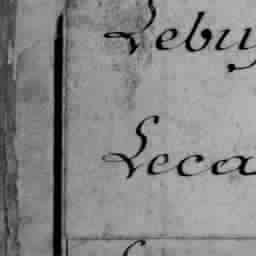 Lebuy
Leca